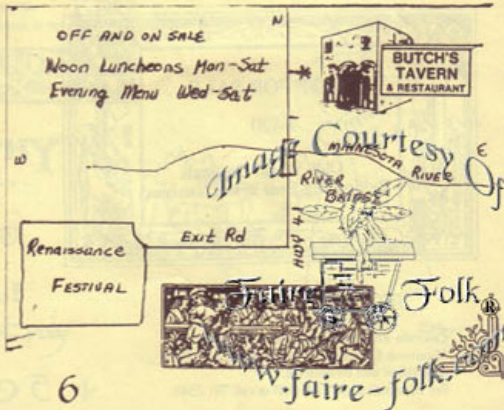 N
OFF AND ON SALE
Noon Luncheons Mon-Sat
Evening Menu Wed-Sat
BUTCH'S
TAVERN
& RESTAURANT
W
E
MINNESOTA RIVER
Image Courtesy Of
RIVER
BRIDGE
HWY 41
Exit Rd
Renaissance
FESTIVAL
Faire Folk®
www.faire-folk.com
6